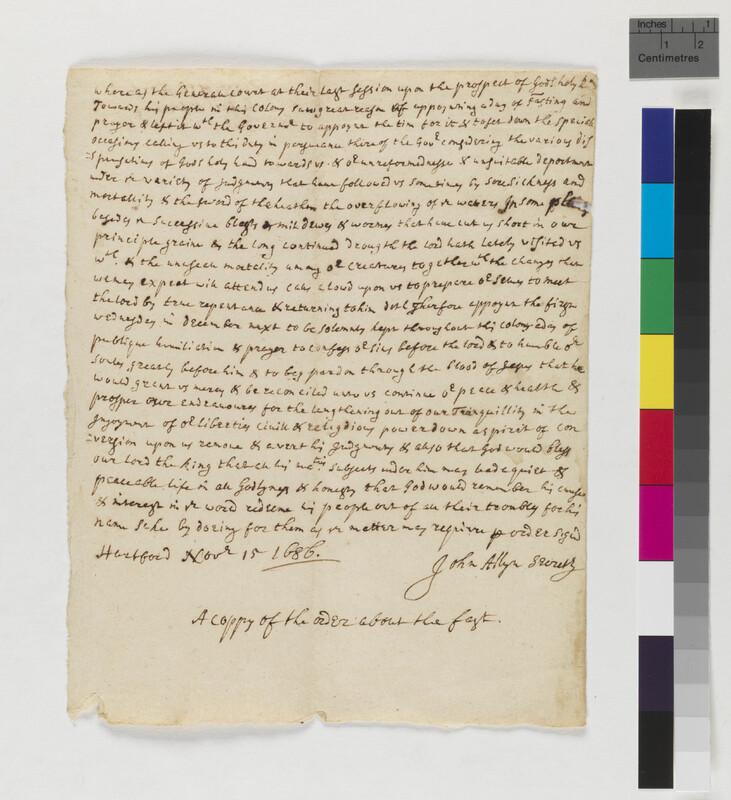 Inches 1
1 2
Centimetres
whereas the Generall Court at their last session upon the prospect of Gods holy
Towards his people in this Colony saw great reason of appoynting a day of Fasting and
prayer & left it wth the Governor to appoynt the tim for it & to set down the speciall
occasions calling us to this duty in persuance thereof the Govr considering the various dis
=spensations of Gods holy hand towards us & or unreformednesse & unsuitable deportment
under ye variety of Judgments that have followed us sometimes by sore sickness and
mortallity & the sword of the heathen the overflowing of ye waters In some places
besides ye successive blasts mildews & wormes that have cut us short in our
principle graine & the long continued drought the lord hath lately visited us
wth & the unusuall mortality among or creatures together wth the changes that
we may expect will attend us calls aloud upon us to prepare or selves to meet
the lord by true repentance & returning to him doth Therefore appoynt the first
wednesday in december next to be solemnly kept throughout this colony a day of
publique humiliation & prayer to confess or sins before the lord & to humble or
soules greatly before him & to beg pardon through the blood of Jesus that he
would grant us mercy & be reconciled unto us continue or peace & health &
prosper our endeavoures for the lengthening out of our Tranquillity in the
Injoyment of or liberties civill & religdious power down a spirit of con
=version upon us remove & avert his Judgments & also that God would bless
our lord the King that all his maties subjects under him may lead a quiet &
peaceable life in all Godlyness & honesty that God would remember his cause
& interest in ye word redeeme his people out of all their troubls for his
name sake by doeing for them as ye matter may require p order signd
Hartford Novr 15 1686.
John Allyn Secretry
A coppy of the order about the fast.